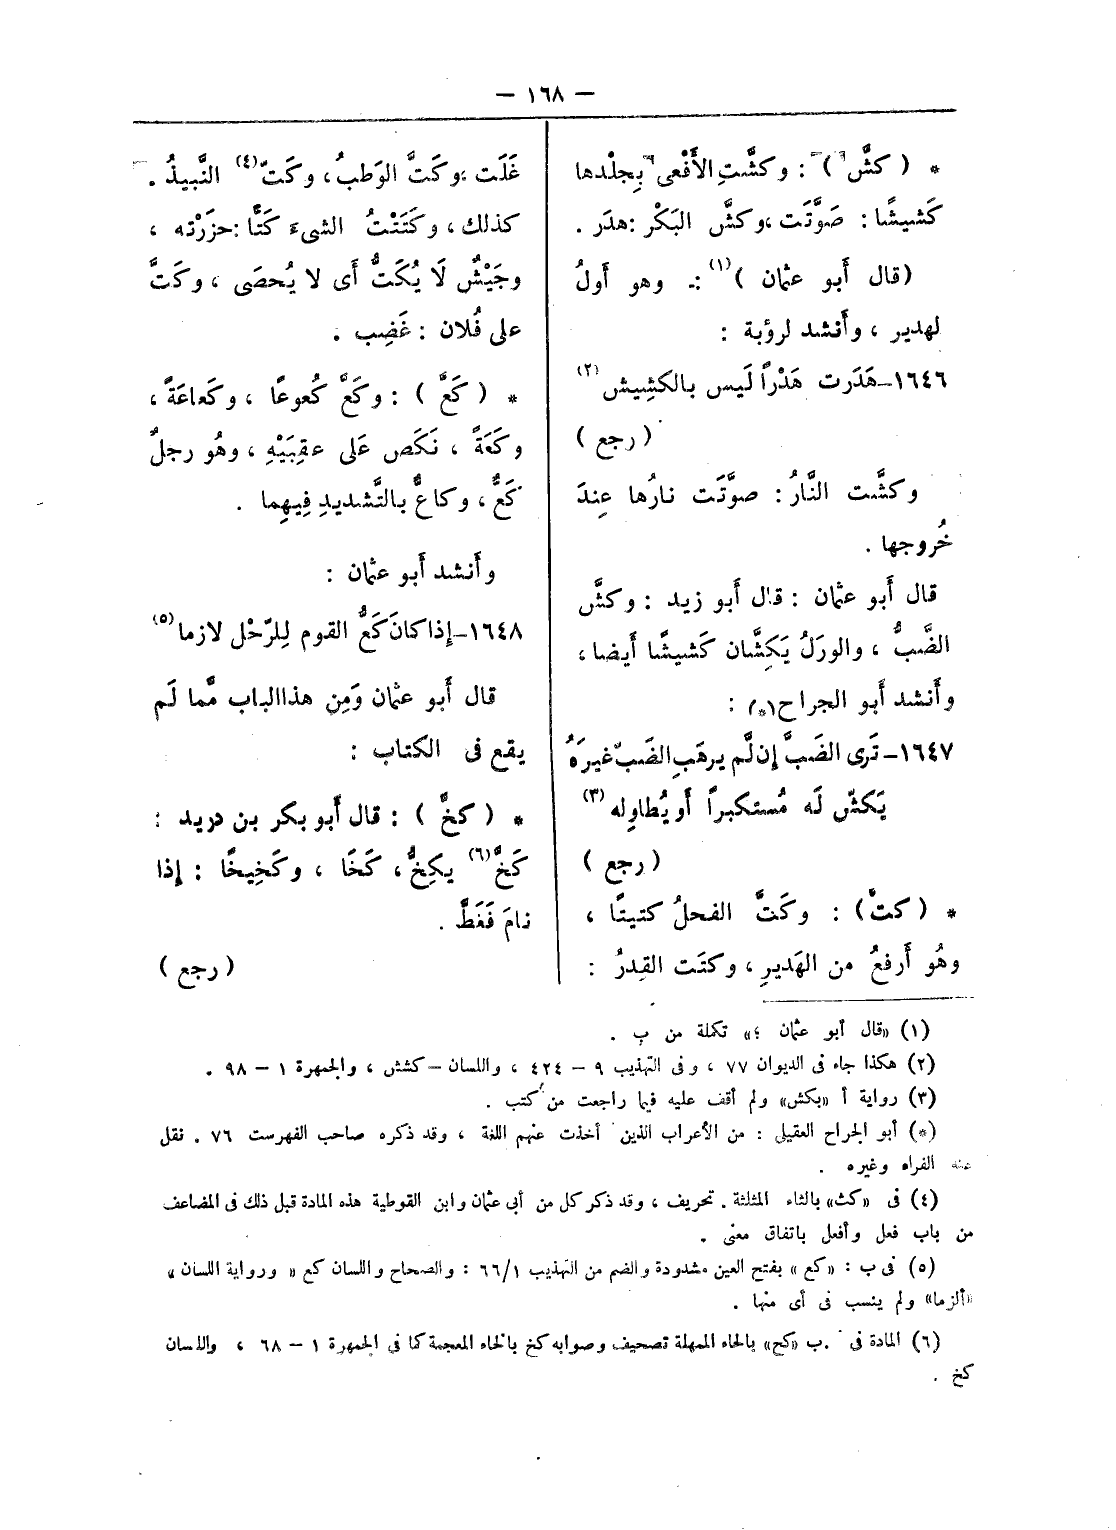 — ١٦٨ —
* ( كشَّ ) : وكشَّتِ الأَفْعى بِجلْدها
كَشيشًا : صَوَّتَت ، وكشَّ البَكْر : هدَر .
(قال أَبو عثمان )(١) : وهو أَولُ
لهدير ، وأَنشد لرؤبة :
١٦٤٦ــ هَدَرت هَدْراً لَيس بالكشِيش(٢)
( رجع )
وكشَّت النَّارُ : صوَّتَت نارُها عِندَ
خُروجها .
قال أَبو عثمان : قال أَبو زيد : وكشَّ
الضَّبُّ ، والورَلُ يَكِشَّان كَشيشًا أَيضا ،
وأَنشد أَبو الجراح(*) :
١٦٤٧ــ تَرى الضَبَّ إِن لَّم يرهَبِ الضَبّ غيرَهُ
يَكشّ لَه مُستكبراً أَو يُطاوِله(٣)
( رجع )
* ( كتَّ) : وكَتَّ الفحلُ كتيتًا ،
وهُو أَرفعُ من الهَديرِ ، وكتَت القِدرُ :
غَلَت ، وكَتَّ الوَطبُ ، وكَتّ(٤) النَّبيذُ .
كذلك ، وكَتَتْتُ الشىءَ كَتًّا : حزَرْته ،
وجَيْشٌ لَا يُكَتُّ أَى لا يُحصَى ، وكَتَّ
على فُلان : غَضِب .
* ( كَعَّ ) : وكَعَّ كُعوعًا ، وكَعاعَةً ،
وكَعَةً ، نَكَص عَلى عقِبَيْهِ ، وهُو رجلٌ
كَعٌّ ، وكاعٌّ بالتَّشديدِ فِيهِما .
وأَنشد أَبو عثمان :
١٦٤٨ــ إِذا كانَ كَعُّ القوم لِلرّحْل لازما(٥)
قال أَبو عثمان وَمِن هذا الباب مَّما لَم
يقع فى الكتاب :
* ( كخَّ ) : قال أَبو بكر بن دريد :
كَخَّ(٦) يكِخُّ ، كَخًا ، وكَخِيخًا : إِذا
نامَ فَغَطَّ .
( رجع )
(١) «قال أبو عثمان ؛» تكملة من ب .
(٢) هكذا جاء فى الديوان ٧٧ ، وفى التهذيب ٩ – ٤٢٤ ، واللسان – كشش ، والجمهرة ١ – ٩٨ .
(٣) رواية أ «بكش» ولم أقف عليه فيما راجعت من كتب .
(*) أبو الجراح العقيلى : من الأعراب الذين أخذت عنهم اللغة ، وقد ذكره صاحب الفهرست ٧٦ . نقل
عنه الفراء وغيره .
(٤) فى «كث» بالثاء المثلثة . تحريف ، وقد ذكر كل من أبى عثمان وابن القوطية هذه المادة قبل ذلك فى المضاعف
من باب فعل وأفعل باتفاق معنى .
(٥) فى ب : «كع» بفتح العين مشدودة والضم من التهذيب ٦٦/١ : والصحاح واللسان كع « ورواية اللسان »
«ألزما» ولم ينسب فى أى منها .
(٦) المادة فى ب «كح» بالحاء المهملة تصحيف وصوابه كخ بالخاء المعجمة كما فى الجمهرة ١ – ٦٨ ، واللسان
كخ .